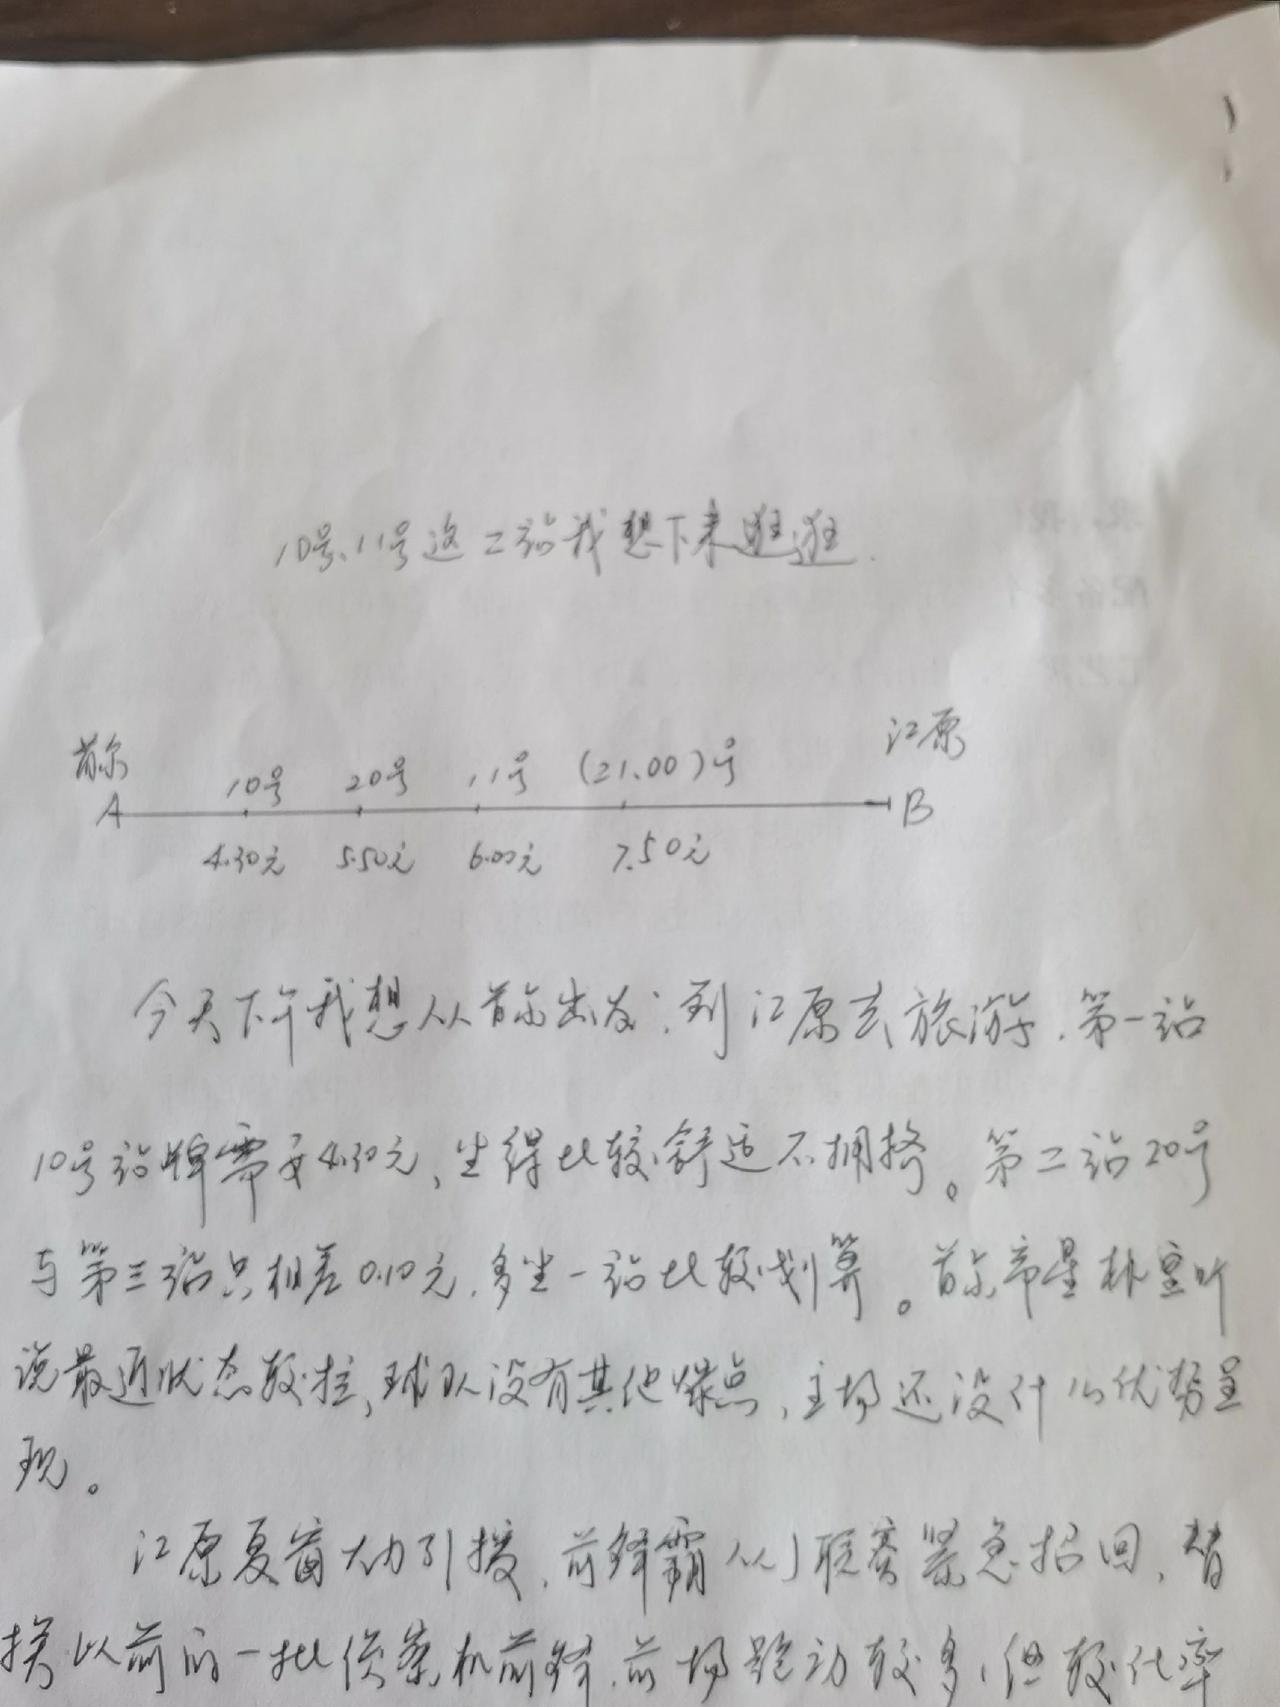 10号、11号这二站我想下来逛逛.
首尔 10号 20号 11号 (21.00)号 江原
A B
4.30元 5.50元 6.00元 7.50元
今天下午我想从首尔出发,到江原去旅游.第一站
10号站牌需要4.30元,坐得比较舒适不拥挤。第二站20号
与第三站只相差0.10元,多坐一站比较划算。首尔帝星朴 听
说最近状态较拉,球队没有其他爆点,主场还没什么优势呈
现。
江原夏窗大力引援,前锋霸从J联赛紧急招回,替
换以前的一批 机前锋.前场跑动较多,但 化率